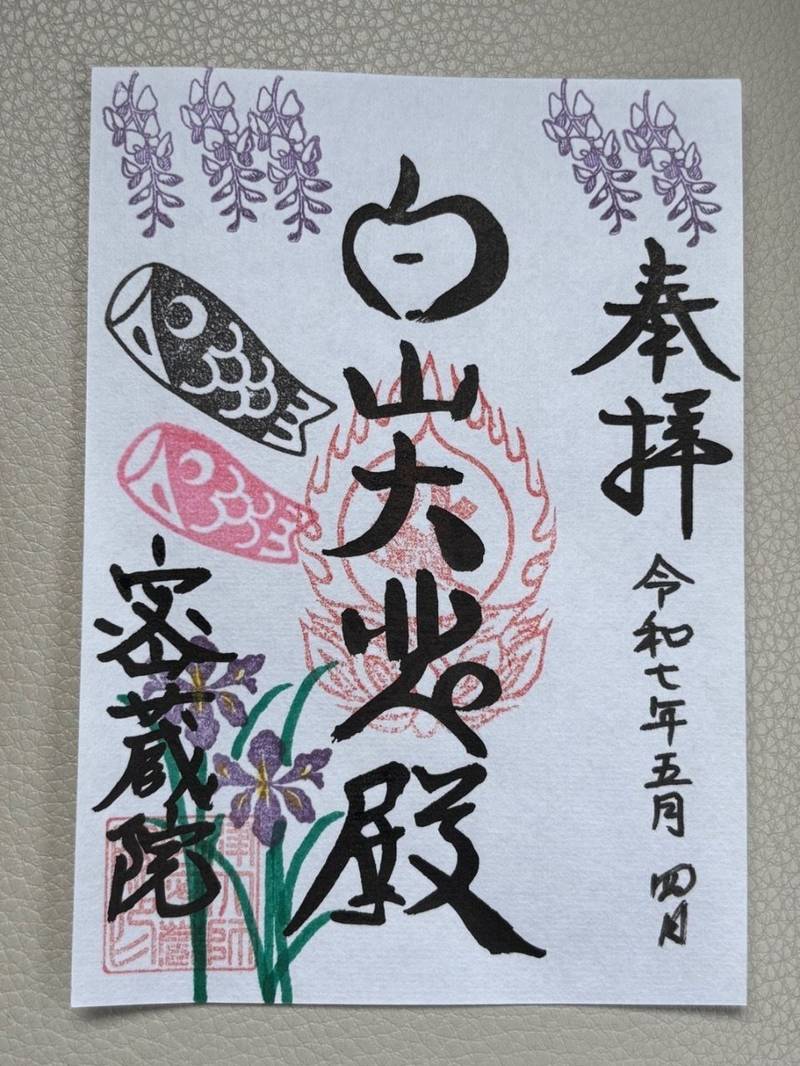 奉拝
令和七年五月四日
白山大悲殿
密蔵院